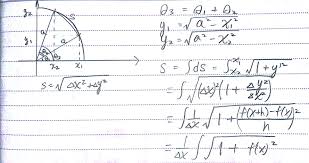 y₂
y₁
S
a
a
θ₂
x₂ x₁
S = √Δx² + Δy²
θ₃ = θ₁ + θ₂
y₁ = √a² - x₁²
y₂ = √a² - x₂²
S = ∫ds = ∫ₓ₂ˣ¹ √1 + y'²
= ∫√(Δx)² (1 + Δy²/Δx²)
= ∫ 1/Δx √1 + (f(x+h) - f(x))²/h
= 1/Δx ∫∫√1 + f(x)²